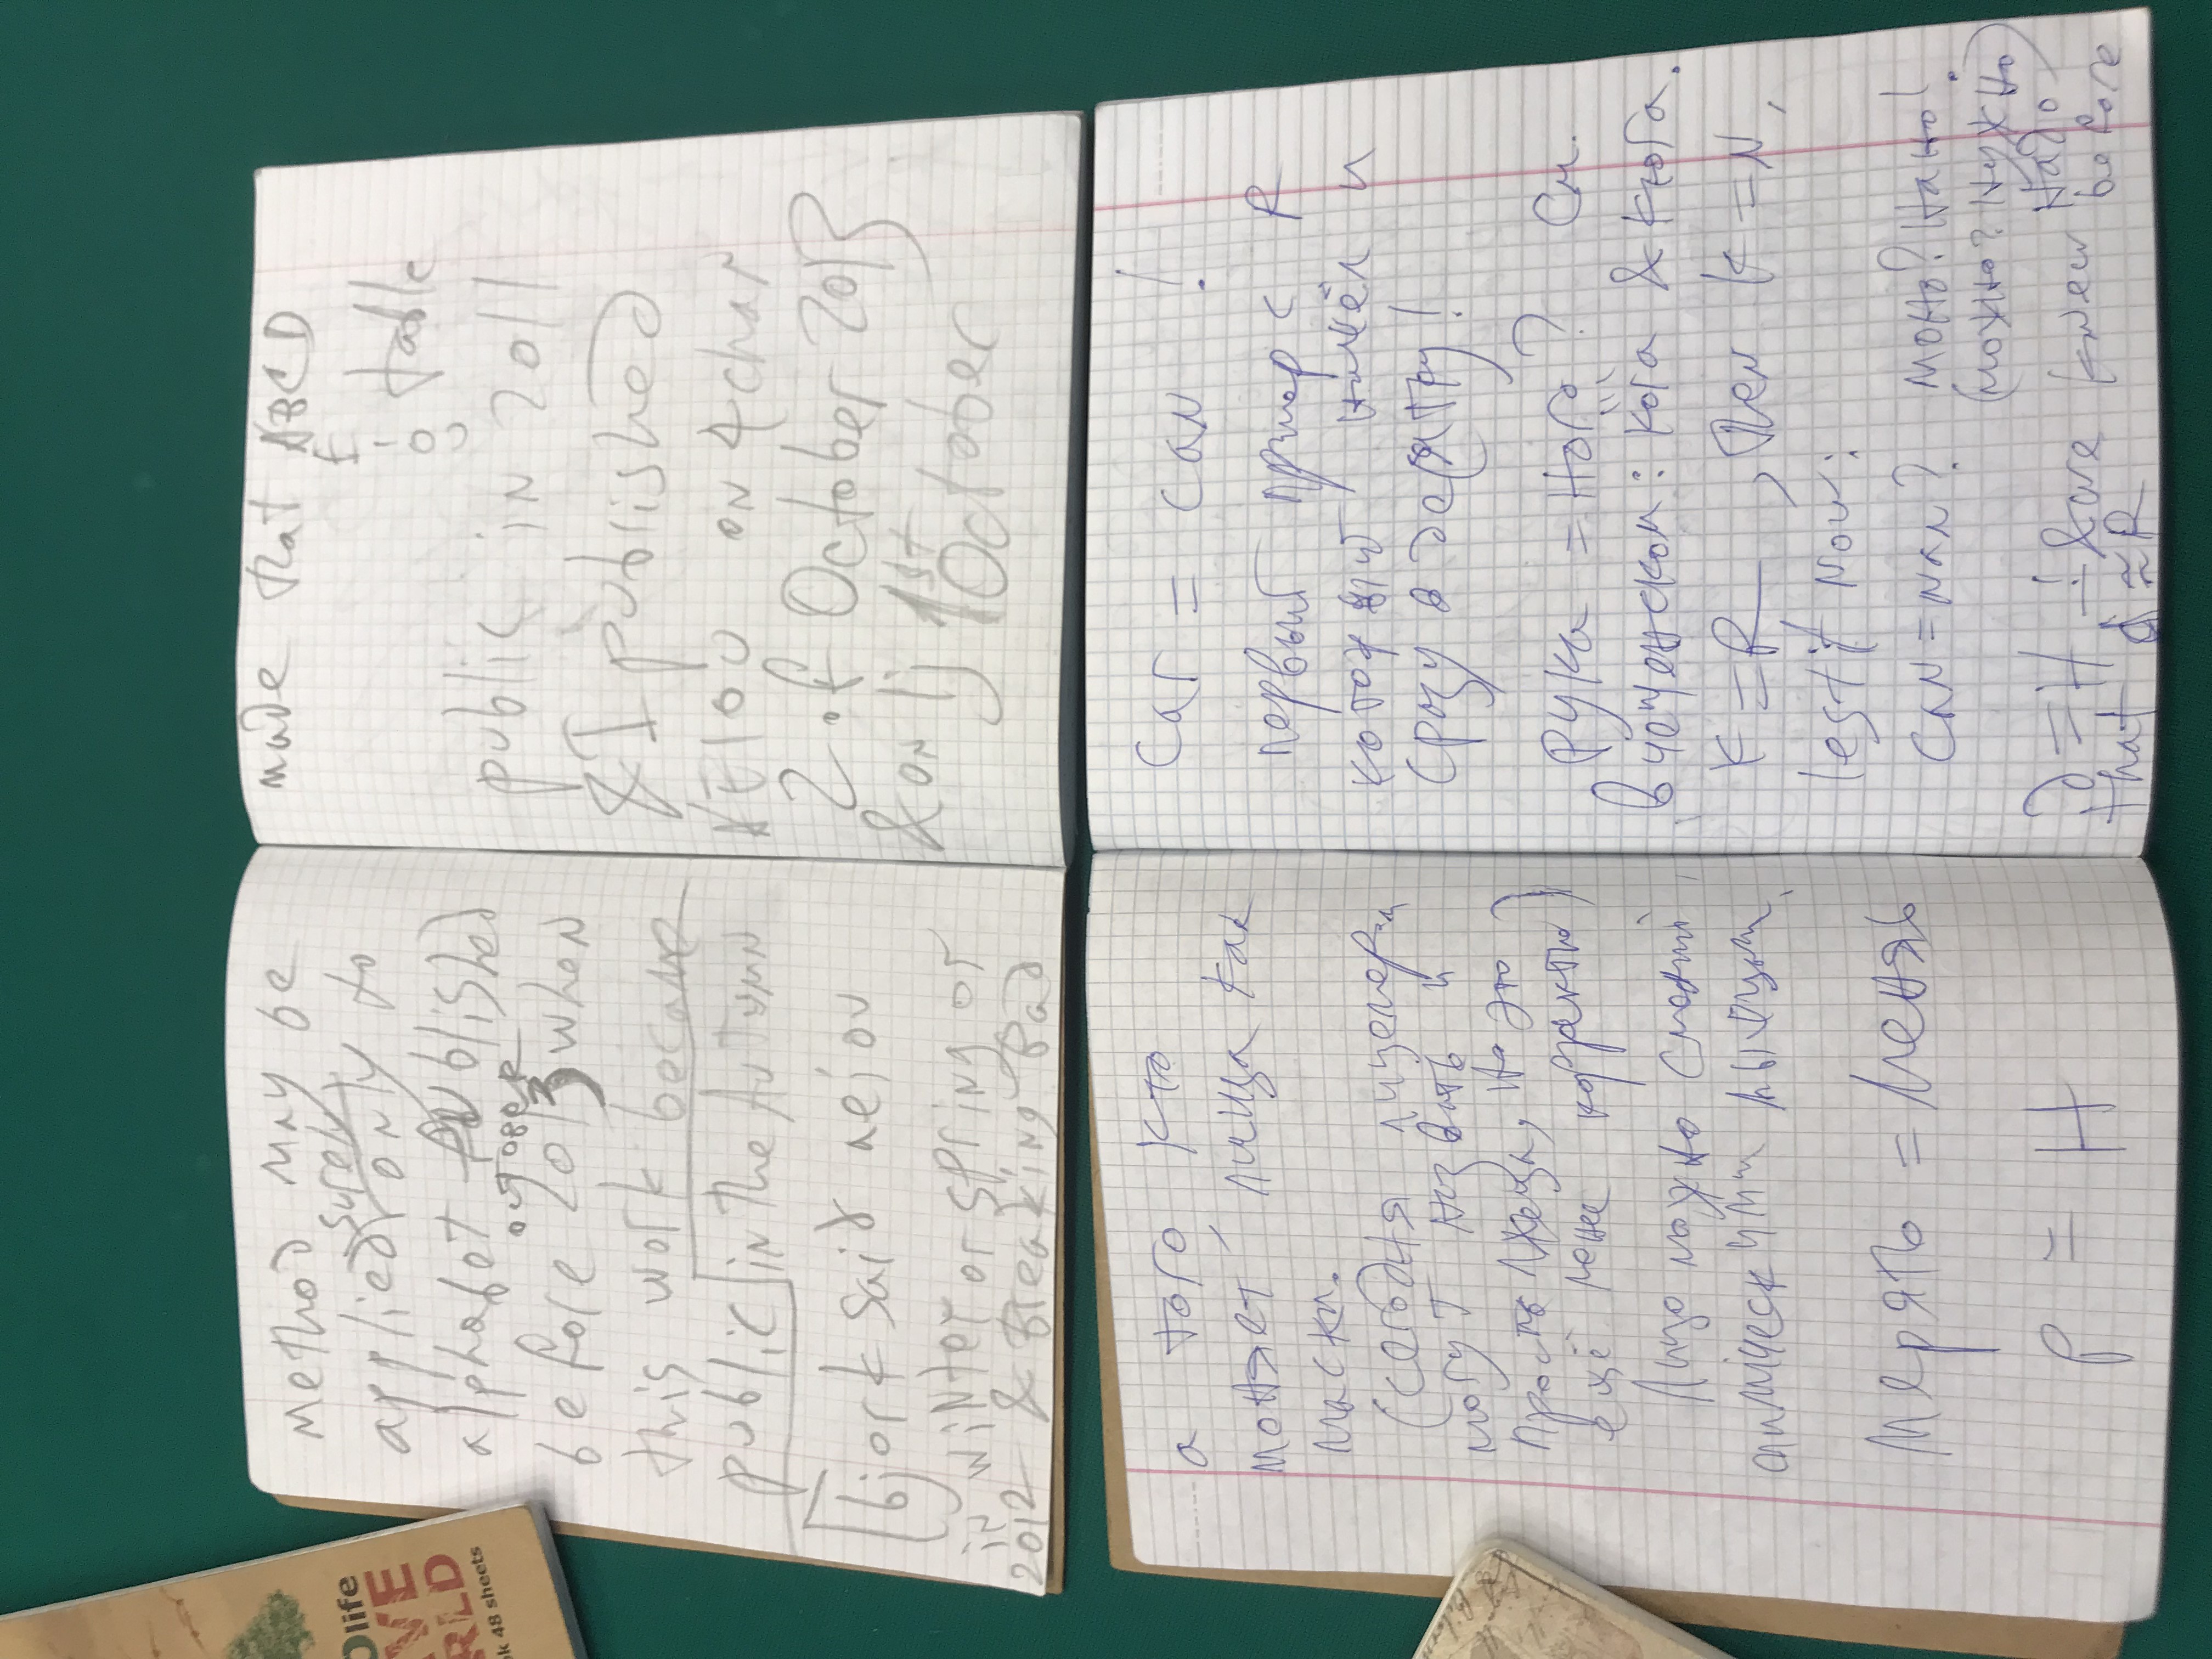 life
VE
RLD
ok 48 sheets
method may be
surely
applied only to
alphabet published
october
before 2013 when
this work became
public in the Autumn
bjork said aeiou
in winter or spring or
2012 & Breaking Bad
made that ABCD
E
I
O table
U
public in 2011
& I published
AEIOU on 4chan
2 of October 2013
& on lj 1st
October
а того кто
моняет лица как
маски.
(сегодня лицемера
могут назвать и
просто лжеца, но это
ещё менее корректно)
Лицо можно
мерять = менять
Р = Н
Car = can !
первый пример с R
который нашёл и
сразу в десятку!
рука = нога? См.
в чеченском: кога & кюга.
K = R, then K = N,
test it now:
can = nan? моно? нано!
(можно? нужно)
надо
д = Н ∸ & we knew before
that d ≈ R